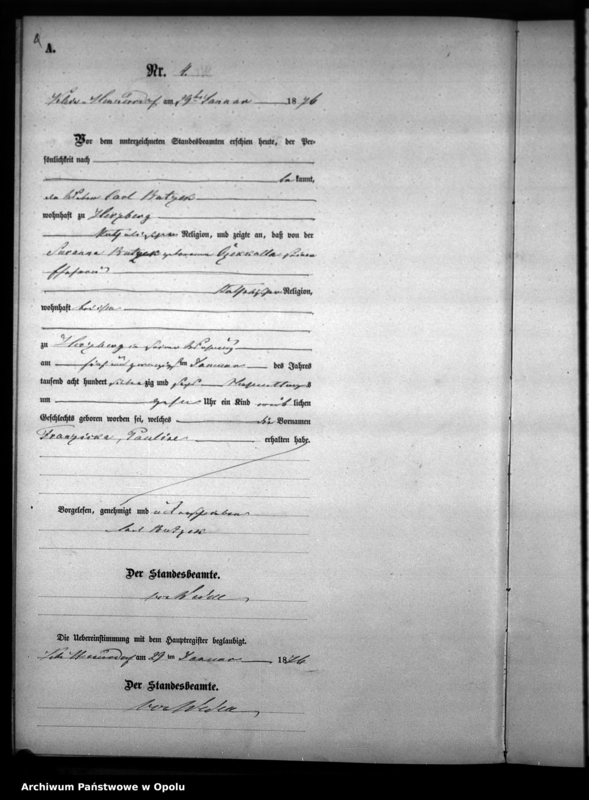 A.
Nr. 4.
am 29ten Januar 1876
Vor dem unterzeichneten Standesbeamten erschien heute, der Per-
sönlichkeit nach
be kannt,
Carl Butzek
wohnhaft zu
Religion, und zeigte an, daß von der
Susanna Butzek geborene
Ehefrau
Religion,
wohnhaft bei ihm
zu in seiner Wohnung
am fünf und zwanzigsten Januar des Jahres
tausend acht hundert siebenzig und sechs Nachmittags
um zehn Uhr ein Kind weib lichen
Geschlechts geboren worden sei, welches die Vornamen
Franziska, Pauline erhalten habe.
Vorgelesen, genehmigt und unterschrieben
Carl Butzek
Der Standesbeamte.
Die Uebereinstimmung mit dem Hauptregister beglaubigt.
am 29 ten Januar 1876
Der Standesbeamte.
Archiwum Państwowe w Opolu